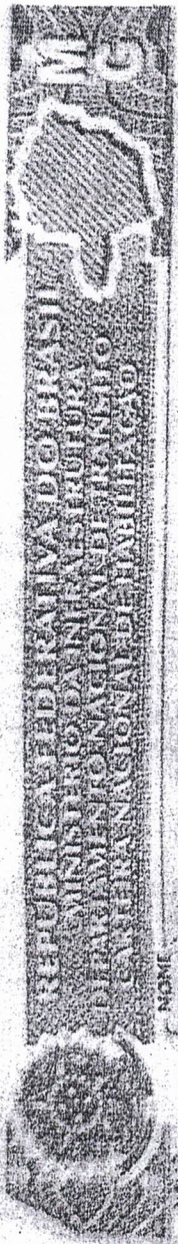 MG
REPÚBLICA FEDERATIVA DO BRASIL
MINISTÉRIO DA INFRAESTRUTURA
DEPARTAMENTO NACIONAL DE TRÂNSITO
CARTEIRA NACIONAL DE HABILITAÇÃO
NOME